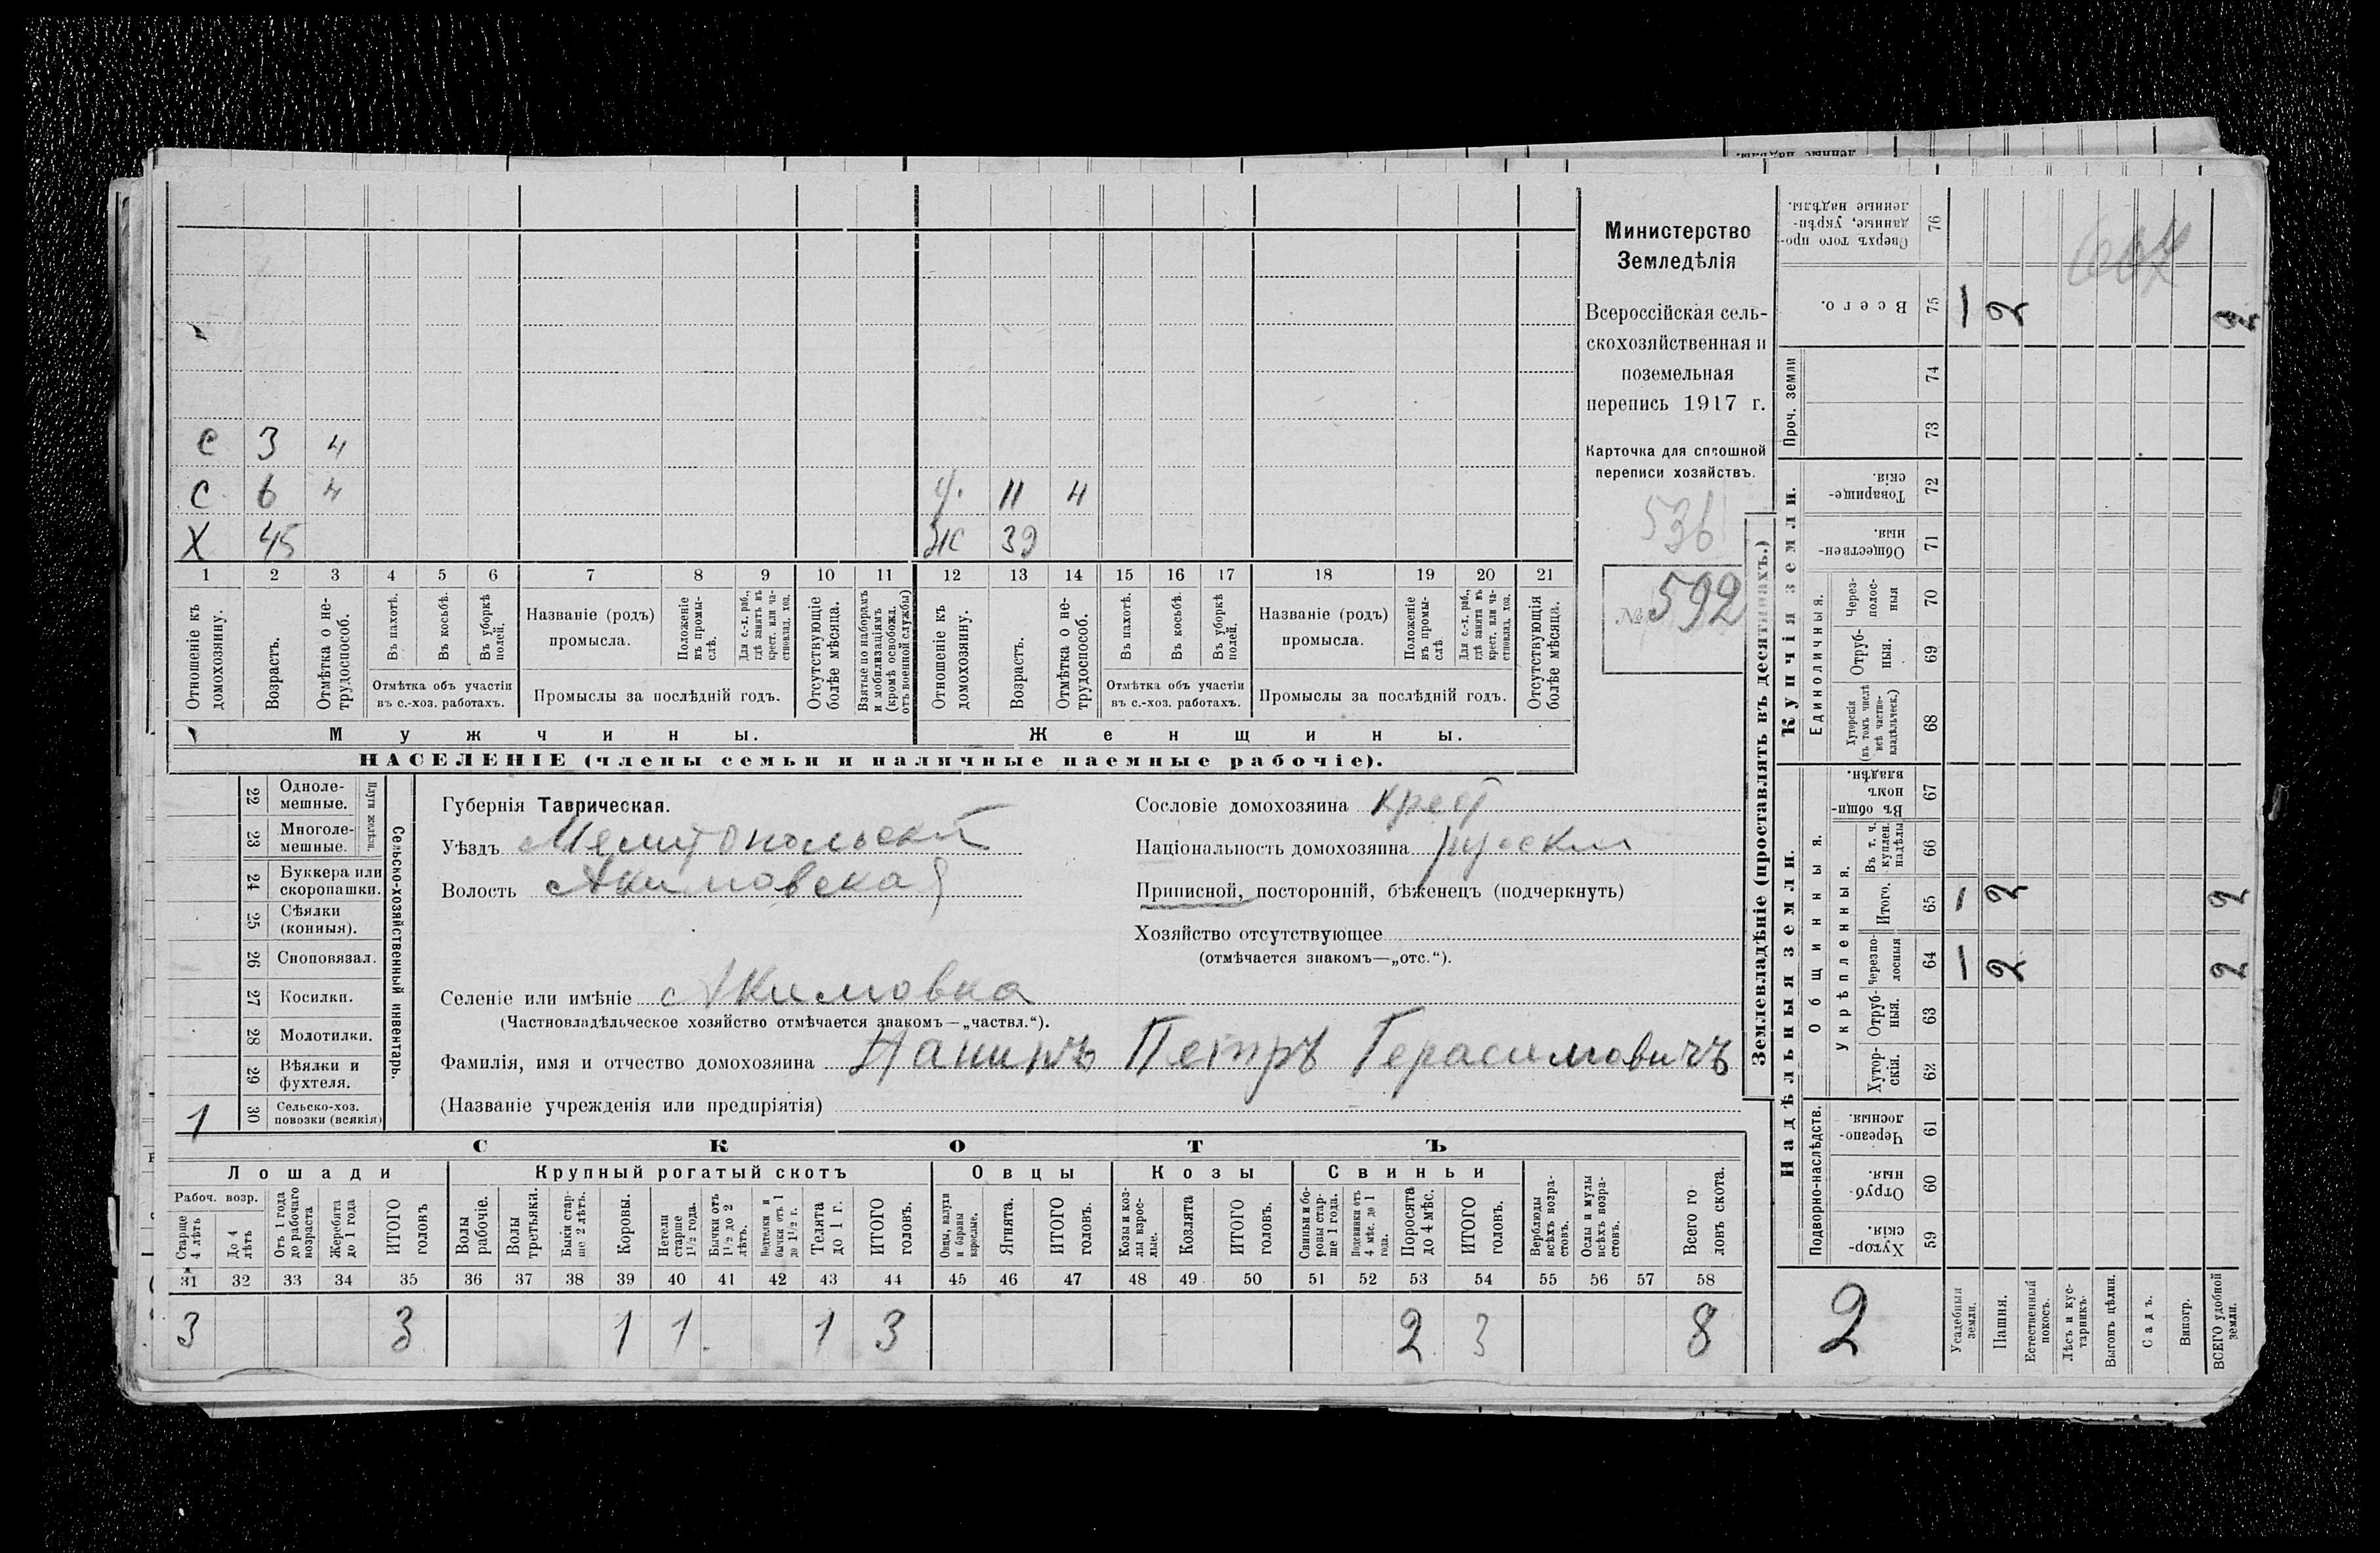 ленные надѣлы.
С 3 4
С 6 4
Х 45
11 4
Ж 39
1 2 3 4 5 6 7 8 9 10 11 12 13 14 15 16 17 18 19 20 21
Отношеніе къ домохозяину.
Возрастъ.
Отмѣтка о не-
трудоспособ.
Въ пахотѣ.
Въ косьбѣ.
Въ уборкѣ полей.
Отмѣтка объ участіи
въ с.-хоз. работахъ.
Названіе (родъ)
промысла.
Положеніе въ промы-
слѣ.
Для с.-х. раб.,
гдѣ занятъ въ
крест. или ча-
стновлад. хоз.
Промыслы за послѣдній годъ.
Отсутствующіе
болѣе мѣсяца.
Взятые по наборамъ
и мобилизаціямъ
(кромѣ освобожд.
отъ военной службы)
Отношеніе къ
домохозяину.
Возрастъ.
Отмѣтка о не-
трудоспособ.
Въ пахотѣ.
Въ косьбѣ.
Въ уборкѣ
полей.
Отмѣтка объ участіи
въ с.-хоз. работахъ.
Названіе (родъ)
промысла.
Положеніе
въ промы-
слѣ.
Для с.-х. раб.,
гдѣ занята въ
крест. или ча-
стновлад. хоз.
Промыслы за послѣдній годъ.
Отсутствующія
болѣе мѣсяца.
Мужчины.
Женщины.
НАСЕЛЕНІЕ (члены семьи и наличные наемные рабочіе).
Министерство
Земледѣлія
Всероссійская сель-
скохозяйственная и
поземельная
перепись 1917 г.
Карточка для сплошной
переписи хозяйствъ.
536
№ 592
22 Одноле-
мешные.
23 Многоле-
мешные.
Плуги желѣзн.
24 Буккера или
скоропашки.
25 Сѣялки
(конныя).
26 Сноповязал.
27 Косилки.
28 Молотилки.
29 Вѣялки и
фухтеля.
1 30 Сельско-хоз.
повозки (всякія)
Сельско-хозяйственный инвентарь.
Губернія Таврическая.
Уѣздъ Мелитопольскій
Волость Акимовская
Селеніе или имѣніе Акимовка
(Частновладѣльческое хозяйство отмѣчается знакомъ—„частвл.“).
Фамилія, имя и отчество домохозяина Панинъ Петръ Герасимовичъ
(Названіе учрежденія или предпріятія)
Сословіе домохозяина Крест
Національность домохозяина русскій
Приписной, посторонній, бѣженецъ (подчеркнуть)
Хозяйство отсутствующее
(отмѣчается знакомъ—„отс.“).
СКОТЪ
Лошади
Крупный рогатый скотъ
Овцы
Козы
Свиньи
Рабоч. возр.
Старше
4 лѣтъ
До 4
лѣтъ
Отъ 1 года
до рабочаго
возраста
Жеребята
до 1 года
ИТОГО
головъ
Волы
рабочіе.
Волы
третьяки.
Быки стар-
ше 2 лѣтъ.
Коровы.
Нетели
старше
1½ года.
Бычки отъ
1½ до 2
лѣтъ.
бычки отъ 1
до 1½ г.
Телята
до 1 г.
ИТОГО
головъ.
Овцы, валухи
и бараны
взрослые.
Ягнята.
ИТОГО
головъ.
Козы и коз-
лы взрос-
лые.
Козлята
ИТОГО
головъ.
Свиньи и бо-
ровы стар-
ше 1 года.
Подсвинки отъ
4 мѣс. до 1
года.
Поросята
до 4 мѣс.
ИТОГО
головъ.
Верблюды
всѣхъ возра-
стовъ.
Ослы и мулы
всѣхъ возра-
стовъ.
Всего го-
ловъ скота.
31 32 33 34 35 36 37 38 39 40 41 42 43 44 45 46 47 48 49 50 51 52 53 54 55 56 57 58
3 3 1 1 1 3 2 3 8
Землевладѣніе (проставлять въ десятинахъ.)
Надѣльныя земли.
Купчія земли.
Проч. земли
Сверхъ того про-
данные, укрѣп-
ленные надѣлы.
76
Всего.
75 1 2 2
74
73
Товарище-
скія.
72
Обществен-
ныя.
71
Единоличныя.
Через-
полос-
ныя
70
Отруб-
ныя.
69
Хуторскія
(въ томъ числѣ
всѣ частно-
владѣльческ.)
68
Общинныя.
Въ общин-
номъ
владѣн.
67
Укрѣпленныя.
Въ т. ч.
куплен.
надѣлы
66
Итого.
65 1 2 2
Черезпо-
лосныя
64 1 2 2
Отруб-
ныя.
63
Хутор-
скія.
62
Подворно-наслѣдств.
Черезпо-
лосныя.
61
Отруб-
ныя.
60
Хутор-
скія.
59
2
Усадебныя
земли.
Пашня.
Естественный
покосъ.
Лѣсъ и кус-
тарникъ.
Выгонъ цѣлин.
Садъ.
Виногр.
ВСЕГО удобной
земли.